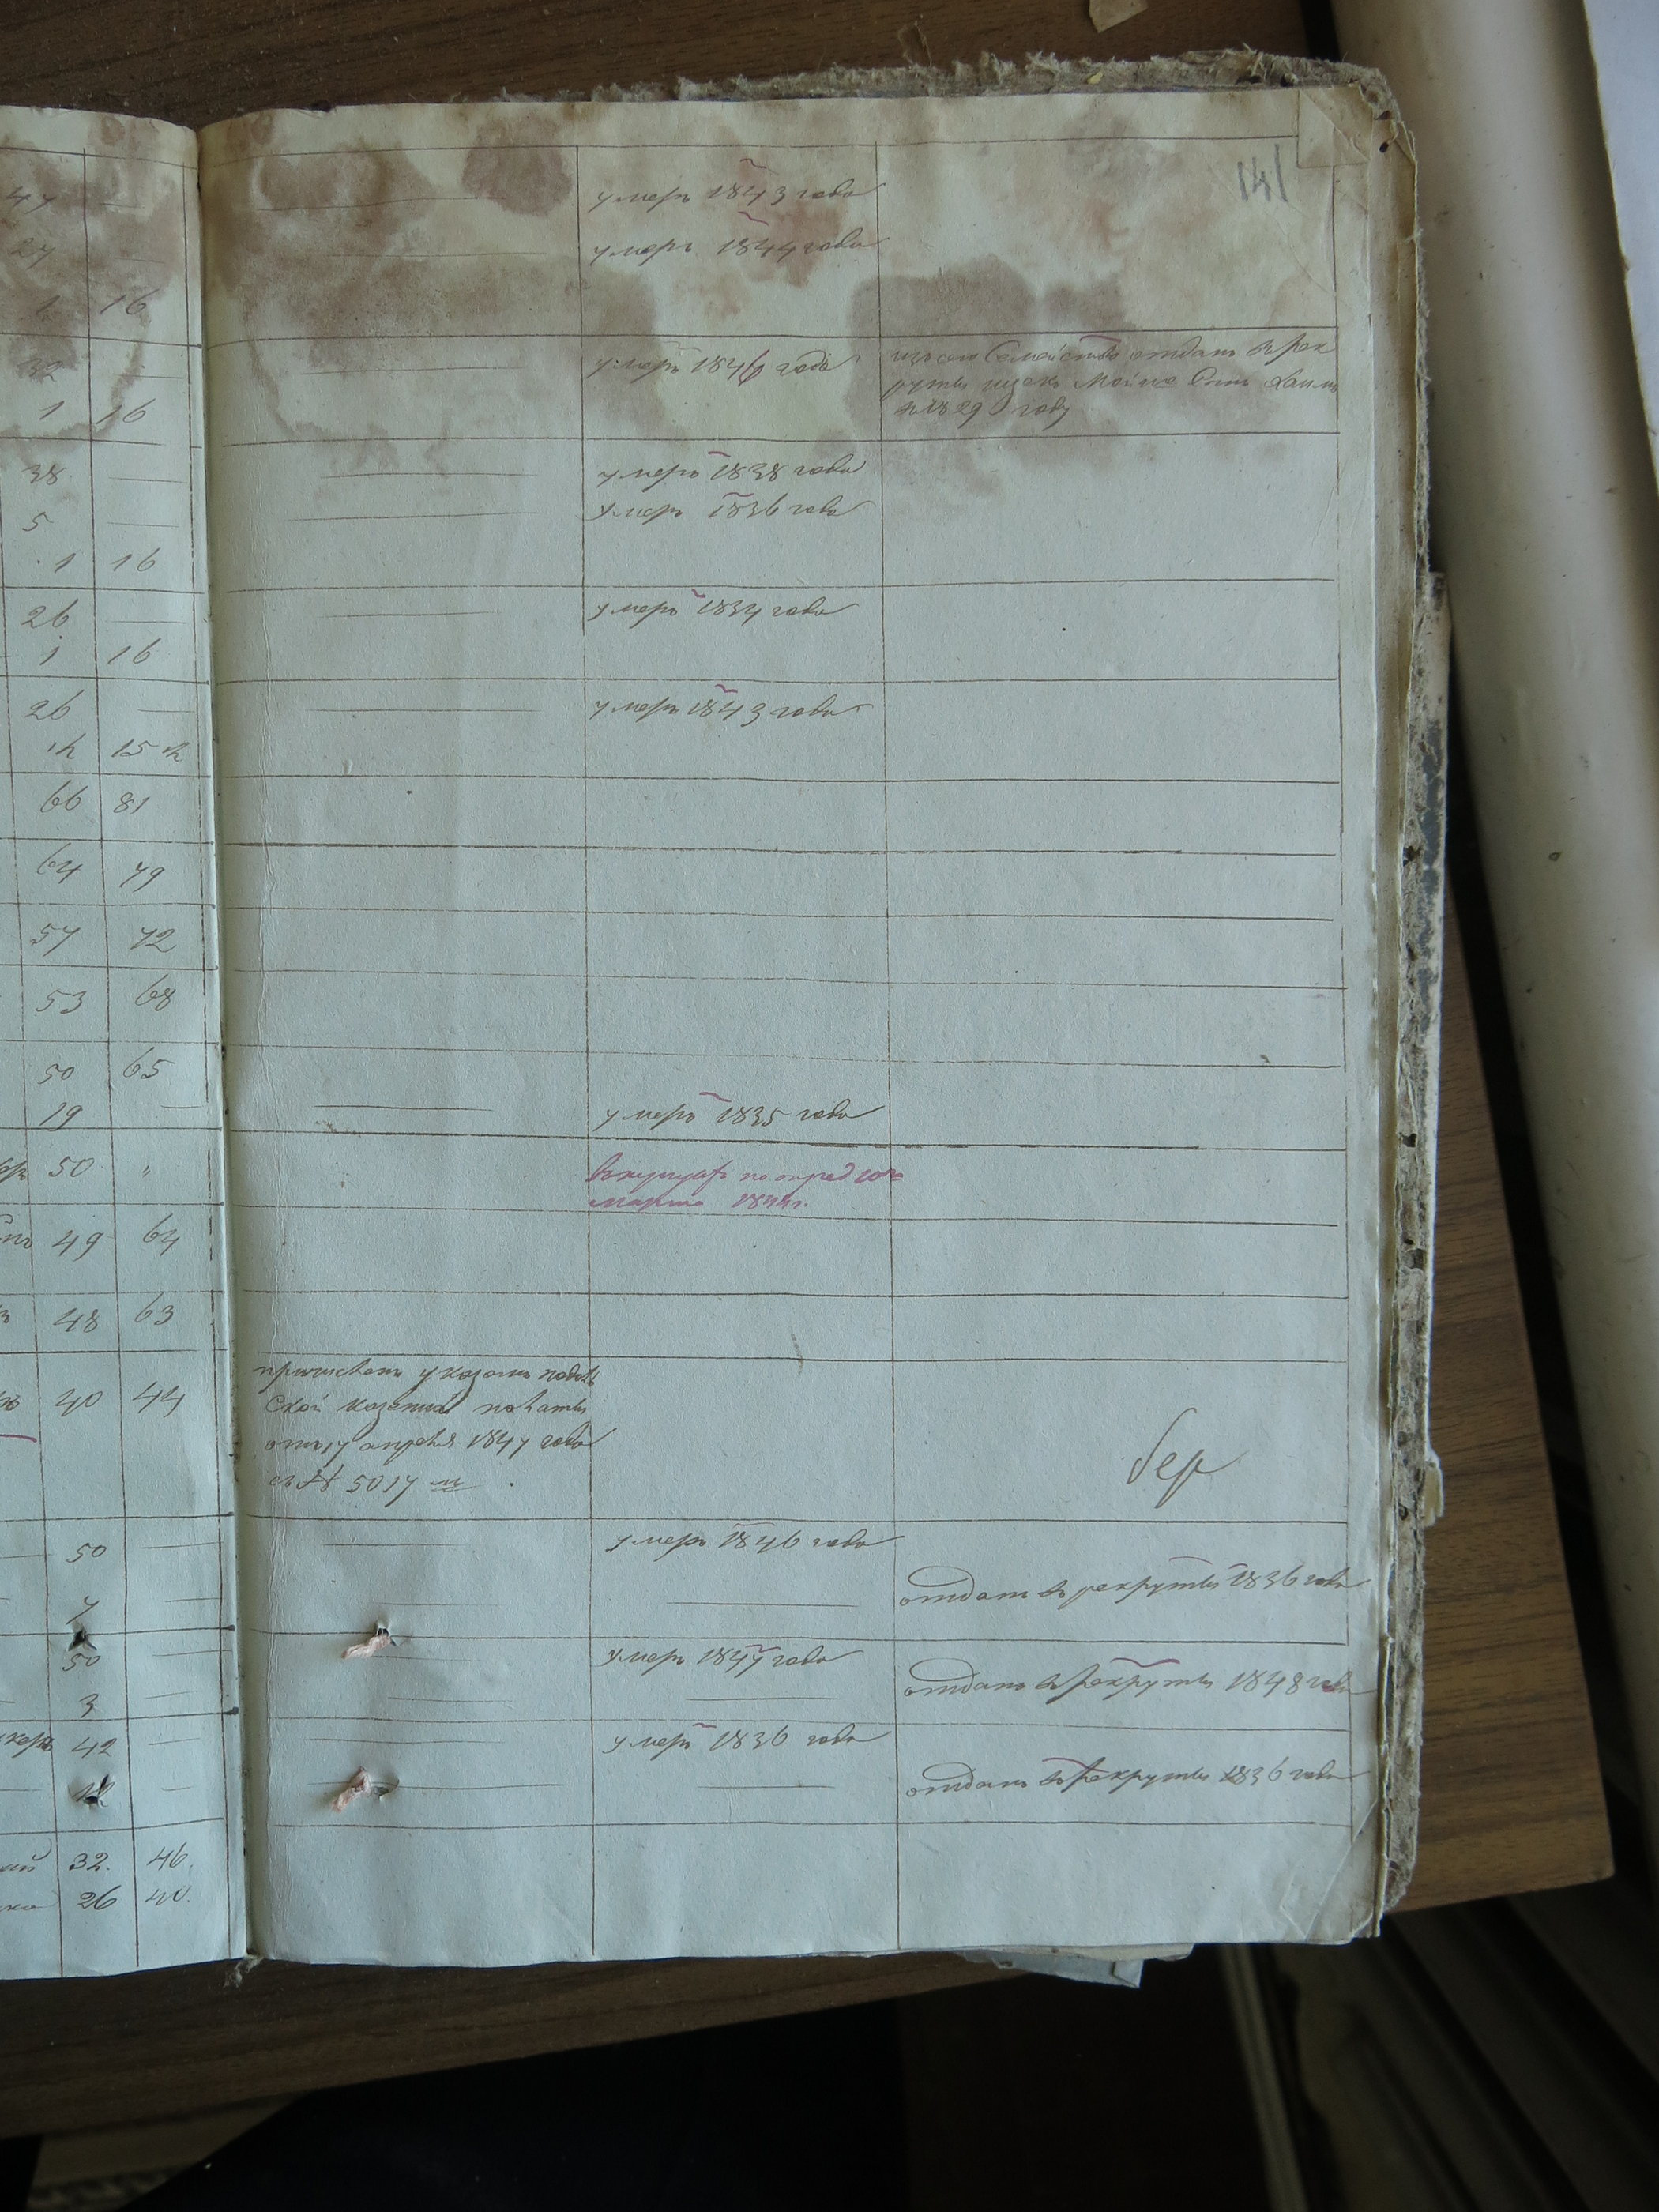 141
47
умеръ 1843 года
27
умеръ 1844 года
1 16
32
умеръ 1846 года
изъ сего Семейства отданъ въ рек
руты
1 16
въ 1829 году
38
умеръ 1838 года
5
умеръ 1836 года
1 16
26
умеръ 1834 года
1 16
26
умеръ 1843 года
66 81
64 79
57 72
53 68
50 65
19
умеръ 1835 года
50 "
по опред 10го
марта 1844 г.
49 64
48 63
причисленъ указомъ подоль
ской казенной палаты
40 44
отъ 17 апреля 1847 года
за № 5017 м
бер
50
умеръ 1846 года
7
отданъ въ рекруты 1836 года
50
умеръ 1847 года
3
отданъ въ рекруты 1848 года
42
умеръ 1836 года
12
отданъ въ рекруты 1836 года
32. 46.
26 40.